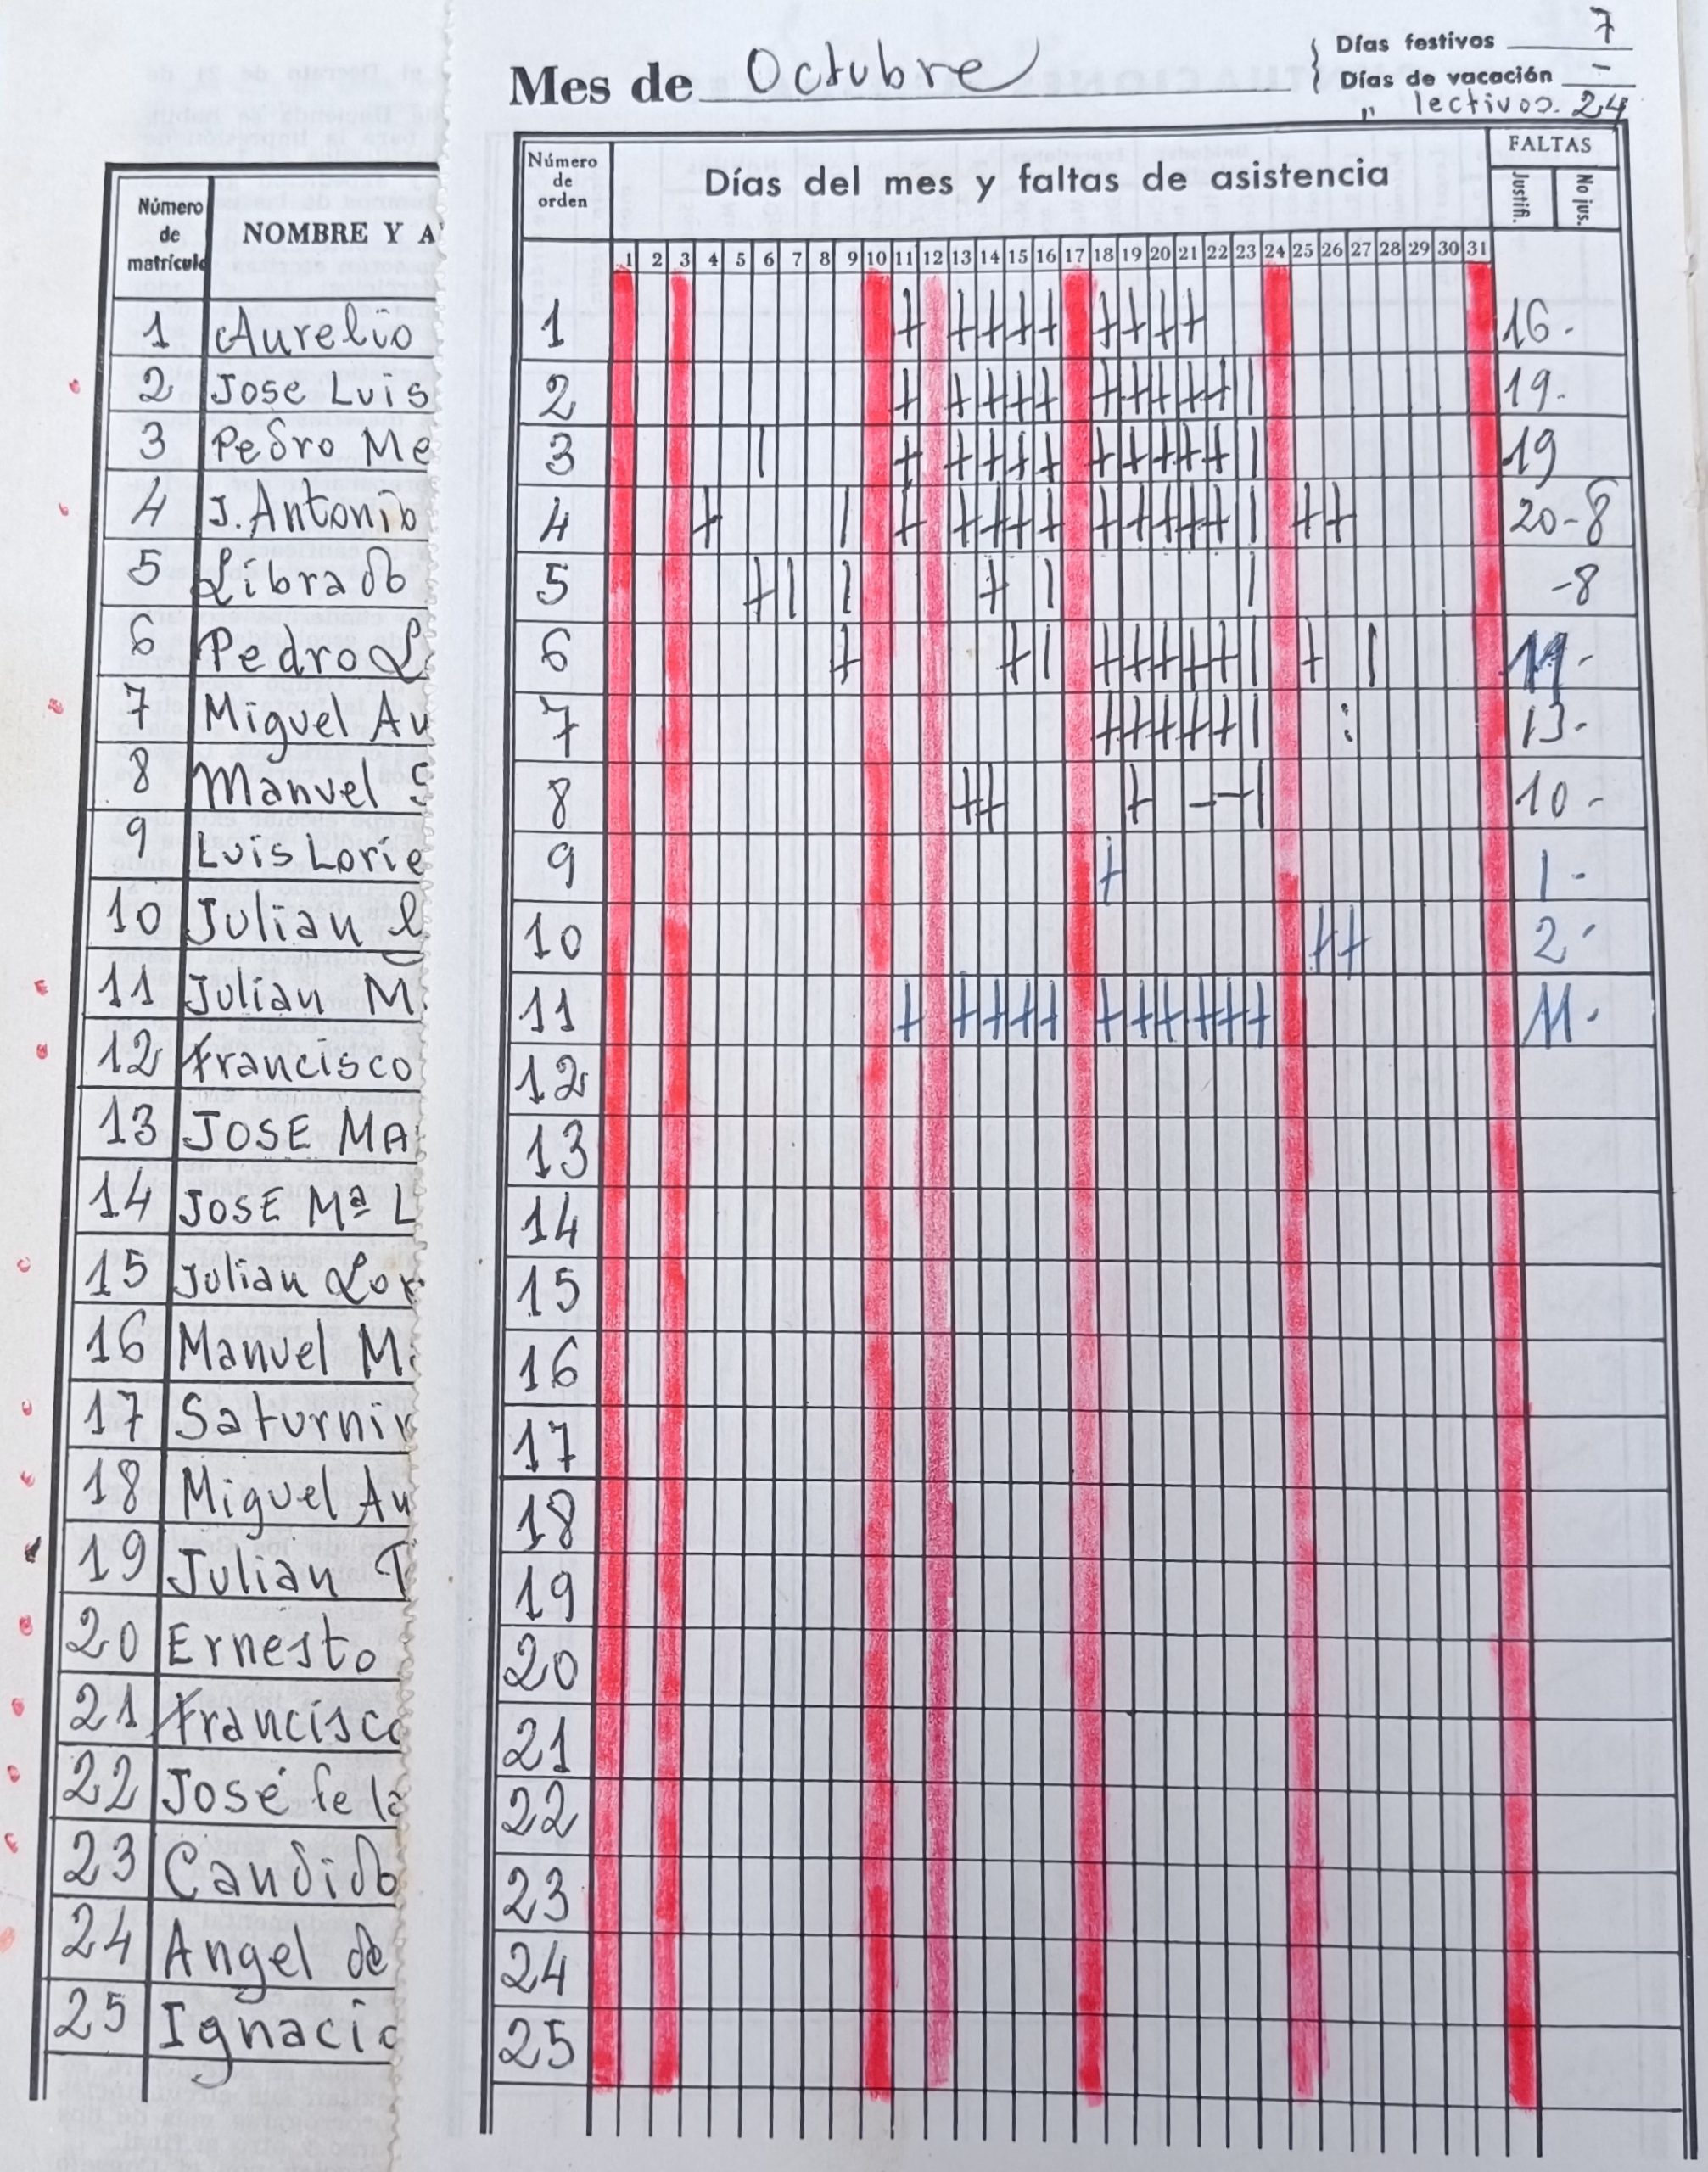 Mes de Octubre
Días festivos 7
Días de vacación -
" lectivos. 24
Número de matrícula
NOMBRE Y A
Número de orden
Días del mes y faltas de asistencia
FALTAS
Justifi.
No jus.
1 2 3 4 5 6 7 8 9 10 11 12 13 14 15 16 17 18 19 20 21 22 23 24 25 26 27 28 29 30 31
1 Aurelio 1 16-
2 Jose Luis 2 19-
3 Pedro Me 3 19
4 J. Antonio 4 20-8
5 Librado 5 -8
6 Pedro L 6
7 Miguel An 7 13-
8 Manuel 8 10-
9 Luis Lorie 9 1-
10 Julian 10 2-
11 Julian M 11 11-
12 Francisco 12
13 JOSE MA 13
14 JOSE Mª L 14
15 Julian Lor 15
16 Manuel M 16
17 Saturnin 17
18 Miguel An 18
19 Julian T 19
20 Ernesto 20
21 Francisco 21
22 José fe la 22
23 Candido 23
24 Angel de 24
25 Ignacio 25